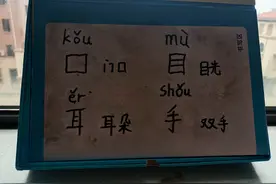 kǒu mù
口 门口 目 目光
ěr shǒu
耳 耳朵 手 双手